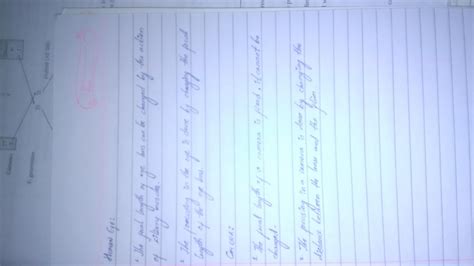 Human Eye:
* The focal length of eye lens can be changed by the action
of ciliary muscles.
* The focusing in the eye is done by changing the focal
length of the eye lens.
Camera:
* The focal length of a camera is fixed, it cannot be
changed.
* The focusing in a camera is done by changing the
distance between the lens and the film.